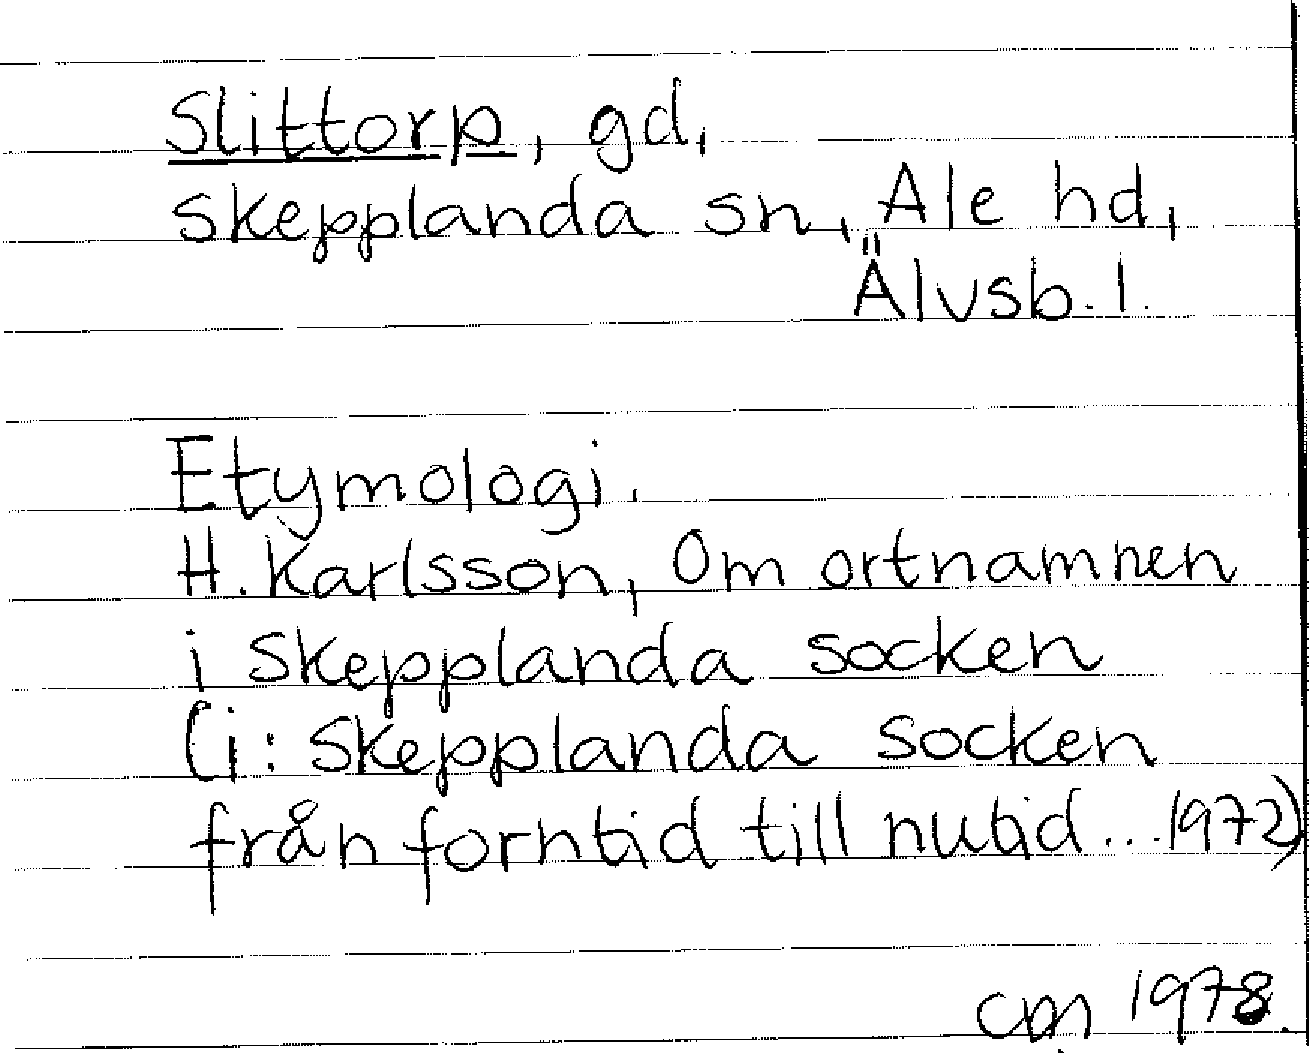 Slittorp, gd,
Skepplanda sn, Ale hd,
Älvsb. l.
Etymologi.
H. Karlsson, Om ortnamnen
i Skepplanda socken
(i: Skepplanda socken
från forntid till nutid... 1972)
1978.